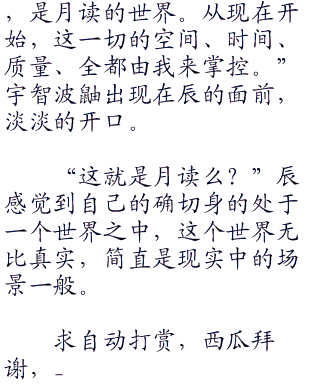 ，是月读的世界。从现在开
始，这一切的空间、时间、
质量、全都由我来掌控。”
宇智波鼬出现在辰的面前，
淡淡的开口。
“这就是月读么？”辰
感觉到自己的确切身的处于
一个世界之中，这个世界无
比真实，简直是现实中的场
景一般。
求自动打赏，西瓜拜
谢，_